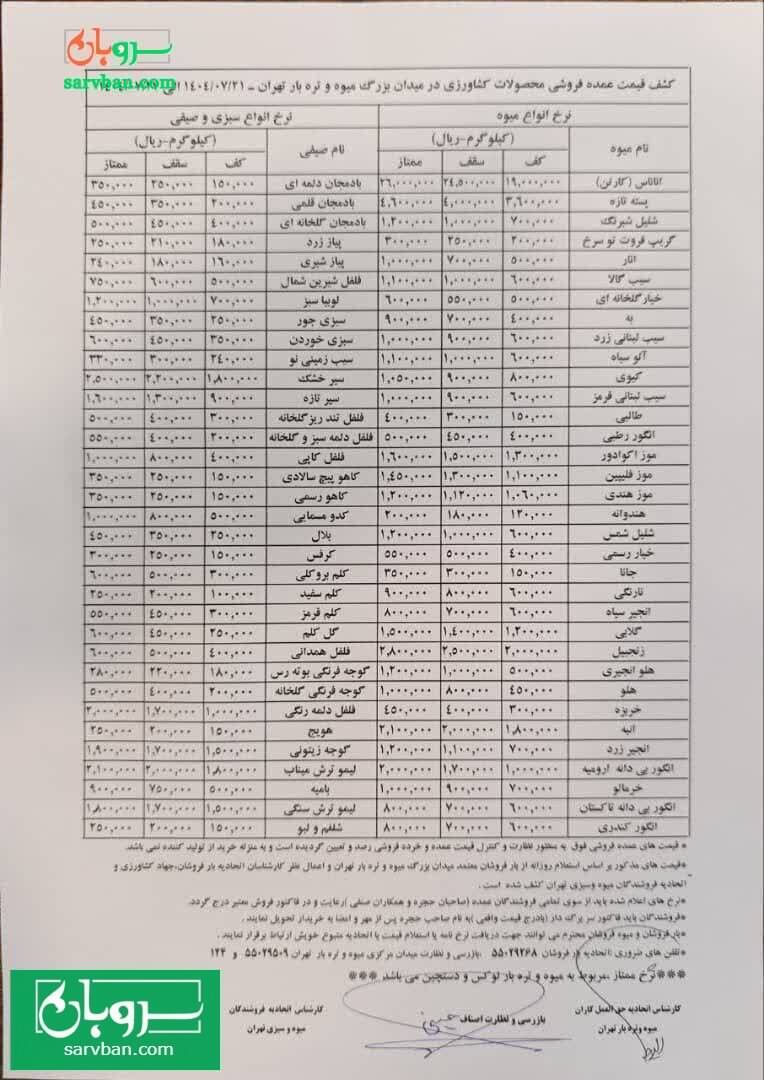 سروبان
sarvban.com
کشف قیمت عمده فروشی محصولات کشاورزی در میدان بزرگ میوه و تره بار تهران - ۱۴۰۴/۰۷/۲۱ الی
نرخ انواع میوه نرخ انواع سبزی و صیفی
نام میوه (کیلوگرم-ریال) نام صیفی (کیلوگرم-ریال)
کف سقف ممتاز کف سقف ممتاز
اناناس (کارتن) ۱۹,۰۰۰,۰۰۰ ۲۴,۵۰۰,۰۰۰ ۲۶,۰۰۰,۰۰۰ بادمجان دلمه ای ۱۵۰,۰۰۰ ۲۵۰,۰۰۰ ۳۵۰,۰۰۰
پسته تازه ۳,۶۰۰,۰۰۰ ۴,۰۰۰,۰۰۰ ۴,۶۰۰,۰۰۰ بادمجان قلمی ۲۰۰,۰۰۰ ۳۵۰,۰۰۰ ۴۵۰,۰۰۰
شلیل شبرنگ ۷۰۰,۰۰۰ ۱,۰۰۰,۰۰۰ ۱,۲۰۰,۰۰۰ بادمجان گلخانه ای ۴۰۰,۰۰۰ ۴۵۰,۰۰۰ ۵۰۰,۰۰۰
گریپ فروت تو سرخ ۲۰۰,۰۰۰ ۲۵۰,۰۰۰ ۳۰۰,۰۰۰ پیاز زرد ۱۸۰,۰۰۰ ۲۱۰,۰۰۰ ۲۵۰,۰۰۰
انار ۵۰۰,۰۰۰ ۷۰۰,۰۰۰ ۱,۰۰۰,۰۰۰ پیاز شیری ۱۶۰,۰۰۰ ۱۸۰,۰۰۰ ۲۴۰,۰۰۰
سیب گالا ۶۰۰,۰۰۰ ۱,۰۰۰,۰۰۰ ۱,۱۰۰,۰۰۰ فلفل شیرین شمال ۵۰۰,۰۰۰ ۶۰۰,۰۰۰ ۷۵۰,۰۰۰
خیارگلخانه ای ۵۰۰,۰۰۰ ۵۵۰,۰۰۰ ۶۰۰,۰۰۰ لوبیا سبز ۷۰۰,۰۰۰ ۱,۰۰۰,۰۰۰ ۱,۲۰۰,۰۰۰
به ۴۰۰,۰۰۰ ۷۰۰,۰۰۰ ۹۰۰,۰۰۰ سبزی جور ۲۵۰,۰۰۰ ۳۵۰,۰۰۰ ۴۵۰,۰۰۰
سیب لبنانی زرد ۶۰۰,۰۰۰ ۹۰۰,۰۰۰ ۱,۰۰۰,۰۰۰ سبزی خوردن ۳۵۰,۰۰۰ ۴۵۰,۰۰۰ ۶۰۰,۰۰۰
آلو سیاه ۶۰۰,۰۰۰ ۱,۰۰۰,۰۰۰ ۱,۱۰۰,۰۰۰ سیب زمینی نو ۲۴۰,۰۰۰ ۳۰۰,۰۰۰ ۳۳۰,۰۰۰
کیوی ۸۰۰,۰۰۰ ۹۰۰,۰۰۰ ۱,۰۵۰,۰۰۰ سیر خشک ۱,۸۰۰,۰۰۰ ۲,۲۰۰,۰۰۰ ۲,۵۰۰,۰۰۰
سیب لبنانی قرمز ۶۰۰,۰۰۰ ۹۰۰,۰۰۰ ۱,۰۰۰,۰۰۰ سیر تازه ۹۰۰,۰۰۰ ۱,۳۰۰,۰۰۰ ۱,۶۰۰,۰۰۰
طالبی ۱۵۰,۰۰۰ ۳۰۰,۰۰۰ ۴۰۰,۰۰۰ فلفل تند ریزگلخانه ۳۰۰,۰۰۰ ۴۰۰,۰۰۰ ۵۰۰,۰۰۰
انگور رطبی ۴۰۰,۰۰۰ ۴۵۰,۰۰۰ ۵۰۰,۰۰۰ فلفل دلمه سبز و گلخانه ۲۰۰,۰۰۰ ۴۰۰,۰۰۰ ۵۵۰,۰۰۰
موز اکوادور ۱,۳۰۰,۰۰۰ ۱,۵۰۰,۰۰۰ ۱,۶۰۰,۰۰۰ فلفل کاپی ۴۰۰,۰۰۰ ۸۰۰,۰۰۰ ۱,۰۰۰,۰۰۰
موز فلیپین ۱,۱۰۰,۰۰۰ ۱,۳۰۰,۰۰۰ ۱,۴۵۰,۰۰۰ کاهو پیچ سالادی ۱۵۰,۰۰۰ ۲۵۰,۰۰۰ ۳۵۰,۰۰۰
موز هندی ۱,۰۶۰,۰۰۰ ۱,۱۲۰,۰۰۰ ۱,۲۰۰,۰۰۰ کاهو رسمی ۱۵۰,۰۰۰ ۲۵۰,۰۰۰ ۳۵۰,۰۰۰
هندوانه ۱۲۰,۰۰۰ ۱۸۰,۰۰۰ ۲۰۰,۰۰۰ کدو مسمایی ۵۰۰,۰۰۰ ۸۰۰,۰۰۰ ۱,۰۰۰,۰۰۰
شلیل شمس ۶۰۰,۰۰۰ ۱,۰۰۰,۰۰۰ ۱,۲۰۰,۰۰۰ بلال ۲۵۰,۰۰۰ ۳۵۰,۰۰۰ ۴۵۰,۰۰۰
خیار رسمی ۴۰۰,۰۰۰ ۵۰۰,۰۰۰ ۵۵۰,۰۰۰ کرفس ۱۵۰,۰۰۰ ۲۵۰,۰۰۰ ۳۰۰,۰۰۰
جانا ۱۵۰,۰۰۰ ۳۰۰,۰۰۰ ۳۵۰,۰۰۰ کلم بروکلی ۳۰۰,۰۰۰ ۵۰۰,۰۰۰ ۶۰۰,۰۰۰
نارنگی ۶۰۰,۰۰۰ ۸۰۰,۰۰۰ ۹۰۰,۰۰۰ کلم سفید ۱۰۰,۰۰۰ ۲۰۰,۰۰۰ ۲۵۰,۰۰۰
انجیر سیاه ۶۰۰,۰۰۰ ۷۰۰,۰۰۰ ۸۰۰,۰۰۰ کلم قرمز ۳۰۰,۰۰۰ ۴۵۰,۰۰۰ ۵۵۰,۰۰۰
گلابی ۱,۲۰۰,۰۰۰ ۱,۴۰۰,۰۰۰ ۱,۵۰۰,۰۰۰ گل کلم ۲۵۰,۰۰۰ ۴۵۰,۰۰۰ ۶۰۰,۰۰۰
زنجبیل ۲,۰۰۰,۰۰۰ ۲,۵۰۰,۰۰۰ ۲,۸۰۰,۰۰۰ فلفل همدانی ۴۰۰,۰۰۰ ۵۰۰,۰۰۰ ۶۰۰,۰۰۰
هلو انجیری ۵۰۰,۰۰۰ ۱,۰۰۰,۰۰۰ ۱,۲۰۰,۰۰۰ گوجه فرنگی بوته رس ۱۸۰,۰۰۰ ۲۲۰,۰۰۰ ۲۸۰,۰۰۰
هلو ۴۵۰,۰۰۰ ۸۰۰,۰۰۰ ۱,۰۰۰,۰۰۰ گوجه فرنگی گلخانه ۲۰۰,۰۰۰ ۴۰۰,۰۰۰ ۵۰۰,۰۰۰
خربزه ۳۰۰,۰۰۰ ۴۰۰,۰۰۰ ۴۵۰,۰۰۰ فلفل دلمه رنگی ۱,۰۰۰,۰۰۰ ۱,۷۰۰,۰۰۰ ۲,۰۰۰,۰۰۰
انبه ۱,۸۰۰,۰۰۰ ۲,۰۰۰,۰۰۰ ۲,۱۰۰,۰۰۰ هویج ۱۵۰,۰۰۰ ۲۰۰,۰۰۰ ۲۵۰,۰۰۰
انجیر زرد ۷۰۰,۰۰۰ ۱,۱۰۰,۰۰۰ ۱,۲۰۰,۰۰۰ گوجه زیتونی ۱,۵۰۰,۰۰۰ ۱,۷۰۰,۰۰۰ ۱,۹۰۰,۰۰۰
انگور بی دانه ارومیه ۱,۰۰۰,۰۰۰ ۱,۷۰۰,۰۰۰ ۲,۰۰۰,۰۰۰ لیمو ترش میناب ۱,۸۰۰,۰۰۰ ۲,۰۰۰,۰۰۰ ۲,۱۰۰,۰۰۰
خرمالو ۷۰۰,۰۰۰ ۹۰۰,۰۰۰ ۱,۰۰۰,۰۰۰ بامیه ۵۰۰,۰۰۰ ۷۵۰,۰۰۰ ۹۰۰,۰۰۰
انگور بی دانه تاکستان ۶۰۰,۰۰۰ ۷۰۰,۰۰۰ ۸۰۰,۰۰۰ لیمو ترش سنگی ۱,۵۰۰,۰۰۰ ۱,۷۰۰,۰۰۰ ۱,۸۰۰,۰۰۰
انگور کندری ۶۰۰,۰۰۰ ۷۰۰,۰۰۰ ۸۰۰,۰۰۰ شلغم و لبو ۱۵۰,۰۰۰ ۲۰۰,۰۰۰ ۲۵۰,۰۰۰
*قیمت های عمده فروشی فوق به منظور نظارت و کنترل قیمت عمده و خرده فروشی رصد و تعیین گردیده است و به منزله خرید از تولید کننده نمی باشد.
*قیمت های مذکور بر اساس استعلام روزانه از بار فروشان معتمد میدان بزرگ میوه و تره بار تهران و اعمال نظر کارشناسان اتحادیه بار فروشان،جهاد کشاورزی و
اتحادیه فروشندگان میوه وسبزی تهران کشف شده است .
*نرخ های اعلام شده باید از سوی تمامی فروشندگان عمده (صاحبان حجره و همکاران صنفی )رعایت و در فاکتور فروش معتبر درج گردد.
*فروشندگان باید فاکتور سر برگ دار (بادرج قیمت واقعی )به نام صاحب حجره پس از مهر و امضا به خریدار تحویل نمایند .
*بارفروشان و میوه فروشان محترم می توانند جهت دریافت نرخ نامه یا استعلام قیمت با اتحادیه متبوع خویش ارتباط برقرار نمایند .
*تلفن های ضروری :اتحادیه بار فروشان ۵۵۰۲۹۲۶۸ ،بازرسی و نظارت میدان مرکزی میوه و تره بار تهران ۵۵۰۲۹۵۰۹ و ۱۲۴
***نرخ ممتاز ،مربوط به میوه و تره بار لوکس و دستچین می باشد ***
کارشناس اتحادیه حق العمل کاران بازرسی و نظارت اصناف کارشناس اتحادیه فروشندگان
میوه و تره بار تهران میوه و سبزی تهران
سروبان
sarvban.com